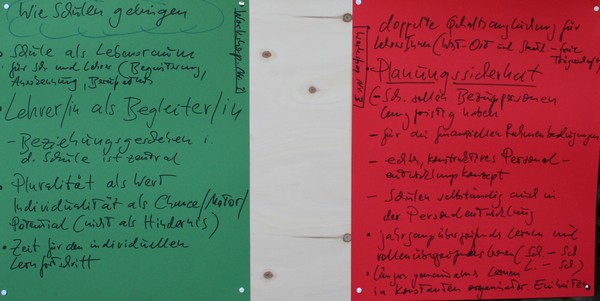 Wie Schulen gelingen
Workshop Nr. 3
• Schule als Lebensraum
für Sch und Lehrer (Begeisterung,
Anerkennung,
• Lehrer/in als Begleiter/in
- Beziehungsgeschehen i.
d. Schule ist zentral
• Pluralität als Wert
Individualität als Chance/Motor/
Potential (nicht als Hindernis)
• Zeit für den individuellen
Lernfortschritt
Workshop Nr. 3
• doppelte für
LehrerInnen (
• Planungssicherheit
(- Sch. sollen Bezugspersonen
langfristig haben
- für die finanziellen Rahmenbedingungen
- echtes, konstruktives Personal-
entwicklungskonzept
- Schulen selbständig auch in
der Personalentwicklung
• jahrgangsübergreifendes Lernen und
rollenübergreifendes Lernen (Sch. - Sch
L. - Sch)
• längeres gemeinsames Lernen
in konstanten organisator. Einheiten